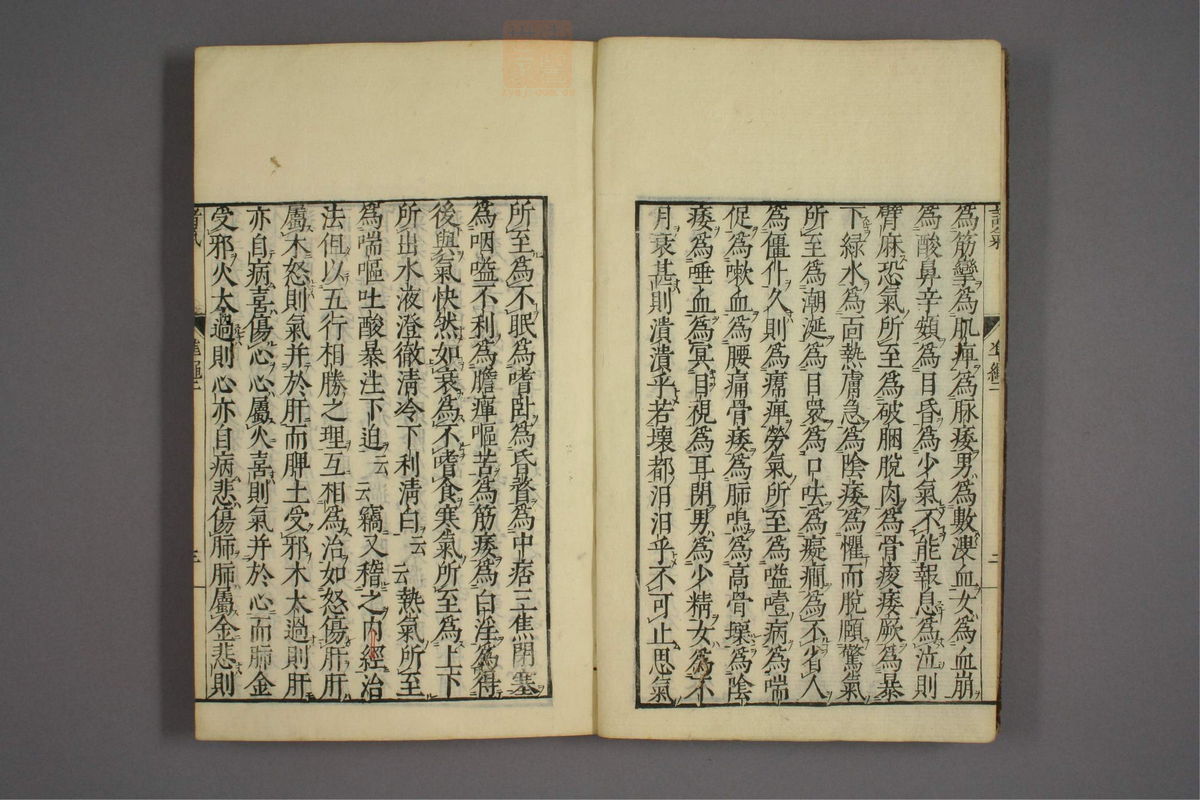 為筋攣為肌痺為脉痿男為數溲血女為血崩
為酸鼻辛頞為目昏為少氣不能報息為泣則
臂麻恐氣所至為破䐃脫肉為骨痠痿厥為暴
下綠水為面熱膚急為陰痿為懼而脫頤驚氣
所至為潮涎為目睘為口呿為癡癇為不省人
為僵仆久則為㾙痺勞氣所至為嗌噎病為喘
促為嗽血為腰痛骨痿為肺鳴為高骨壞為陰
痿為唾血為冥目視為耳閉男為少精女為不
月衰甚則潰潰乎若壞都汨汨乎不可止思氣
所至為不眠為嗜卧為昏瞀為中痞三焦閉塞
為咽嗌不利為膽癉嘔苦為筋痿為白淫為得
後與氣快然如衰為不嗜食寒氣所至為上下
所出水液澄徹清冷下利清白云云熱氣所至
為喘嘔吐酸暴注下迫云云竊又稽之內經治
法但以五行相勝之理互相為治如怒傷肝肝
屬木怒則氣并於肝而脾土受邪木太過則肝
亦自病喜傷心心屬火喜則氣并於心而肺金
受邪火太過則心亦自病悲傷肺肺屬金悲則